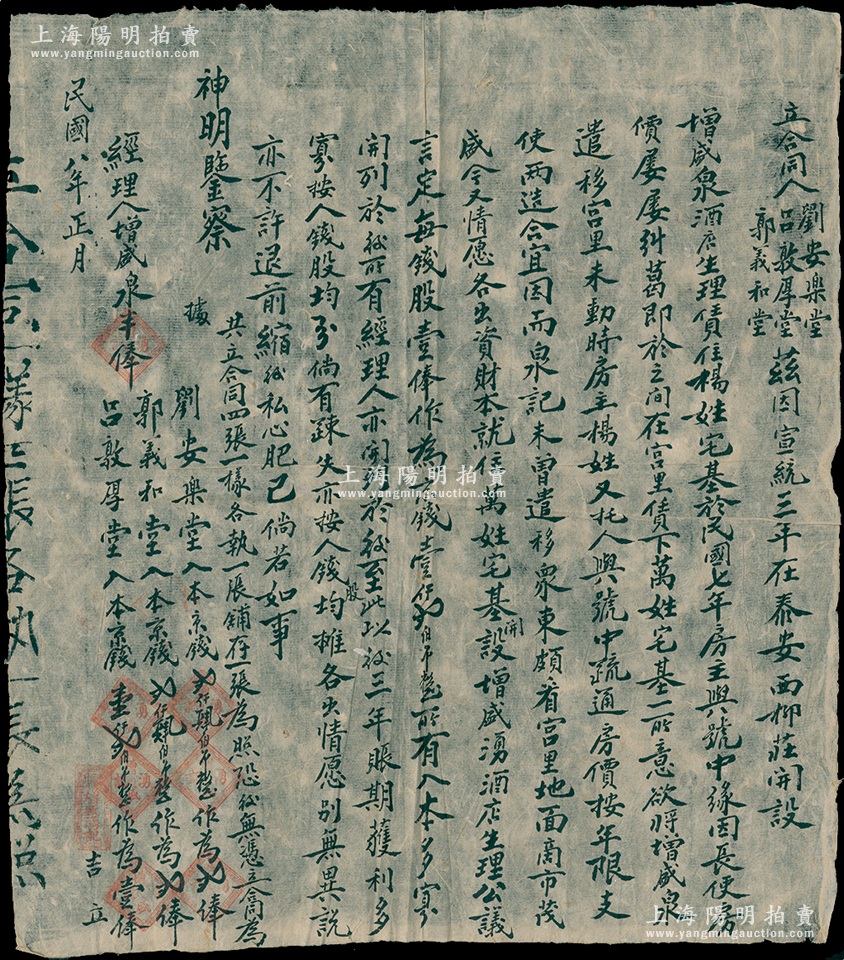 立合同人劉安樂堂呂敦厚堂郭義和堂茲因宣統三年在泰安西柳莊開設
增盛泉酒店生理債住楊姓宅基於民國七年房主與號中緣因長使房
價屢屢糾葛即於之間在宮里債下萬姓宅基一所意欲將增盛泉
遣移宮里未動時房主楊姓又托人與號中疏通房價按年限支
使兩造合宜因而泉記未曾遣移衆東頗看宮里地面商市茂
盛今又情愿各出資財本就住萬姓宅基開設增盛湧酒店生理公議
言定每錢股壹俸作為錢壹仟 佰吊整所有入本多寡
開列於後所有經理人亦開列於後至此以後三年賬期獲利多
寡按人錢股均分倘有踈失亦按人錢股均攤各出情愿別無異說
亦不許退前縮後私心肥己倘若如事
神明鑒察
共立合同四張一樣各執一張鋪存一張為照恐後無憑立合同為
據
劉安樂堂入本京錢 仟 佰吊整作為 俸
郭義和堂入本京錢 仟 佰吊整作為 俸
呂敦厚堂入本京錢壹仟 佰吊整作為壹俸
經理人增盛泉半俸
民國八年正月 吉立
上海陽明拍賣
www.yangmingauction.com
上海陽明拍賣
www.yangmingauction.com
上海陽明拍賣
www.yangmingauction.com
上海陽明拍賣
www.yangmingauction.com
上海陽明拍賣
www.yangmingauction.com